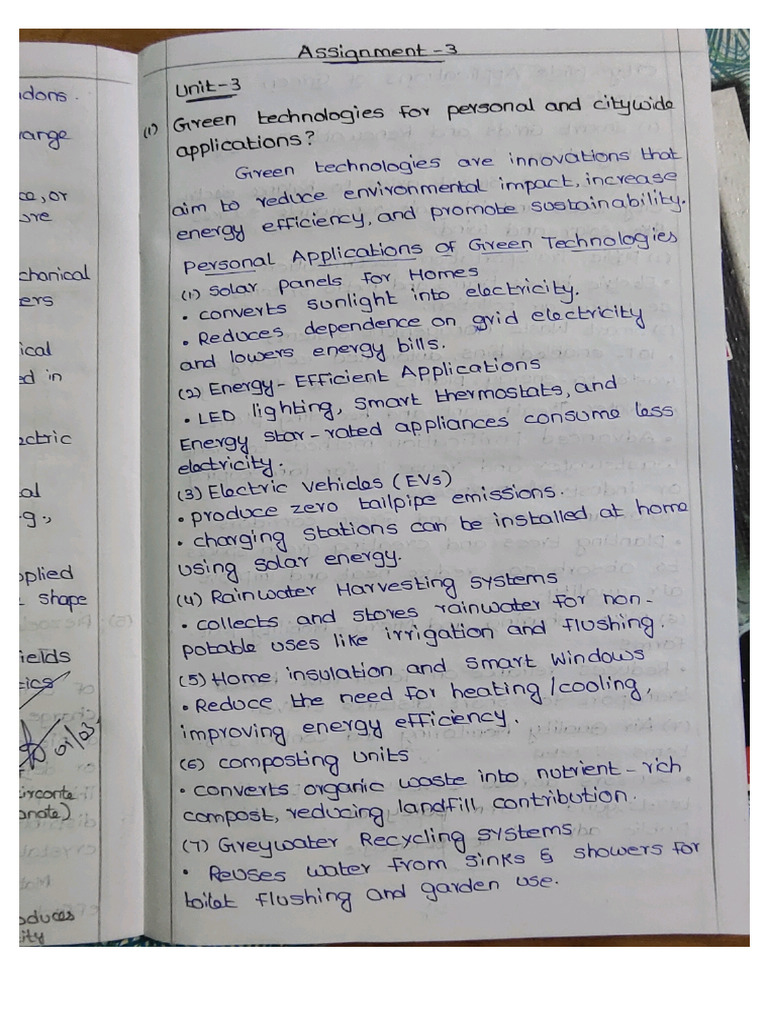 Assignment-3
Unit-3
(1) Green technologies for personal and citywide
applications?
Green technologies are innovations that
aim to reduce environmental impact, increase
energy efficiency, and promote sustainability.
Personal Applications of Green Technologies
(1) Solar panels for Homes
• converts sunlight into electricity.
• Reduces dependence on grid electricity
and lowers energy bills.
(2) Energy-Efficient Applications
• LED lighting, smart thermostats, and
Energy star-rated appliances consume less
electricity.
(3) Electric vehicles (EVs)
• produce zero tailpipe emissions.
• charging stations can be installed at home
using solar energy.
(4) Rainwater Harvesting systems
• collects and stores rainwater for non-
potable uses like irrigation and flushing.
(5) Home, insulation and smart windows
• Reduce the need for heating/cooling,
improving energy efficiency.
(6) composting units
• converts organic waste into nutrient-rich
compost, reducing landfill, contribution.
(7) Greywater Recycling systems
• Reuses water from sinks & showers for
toilet flushing and garden use.